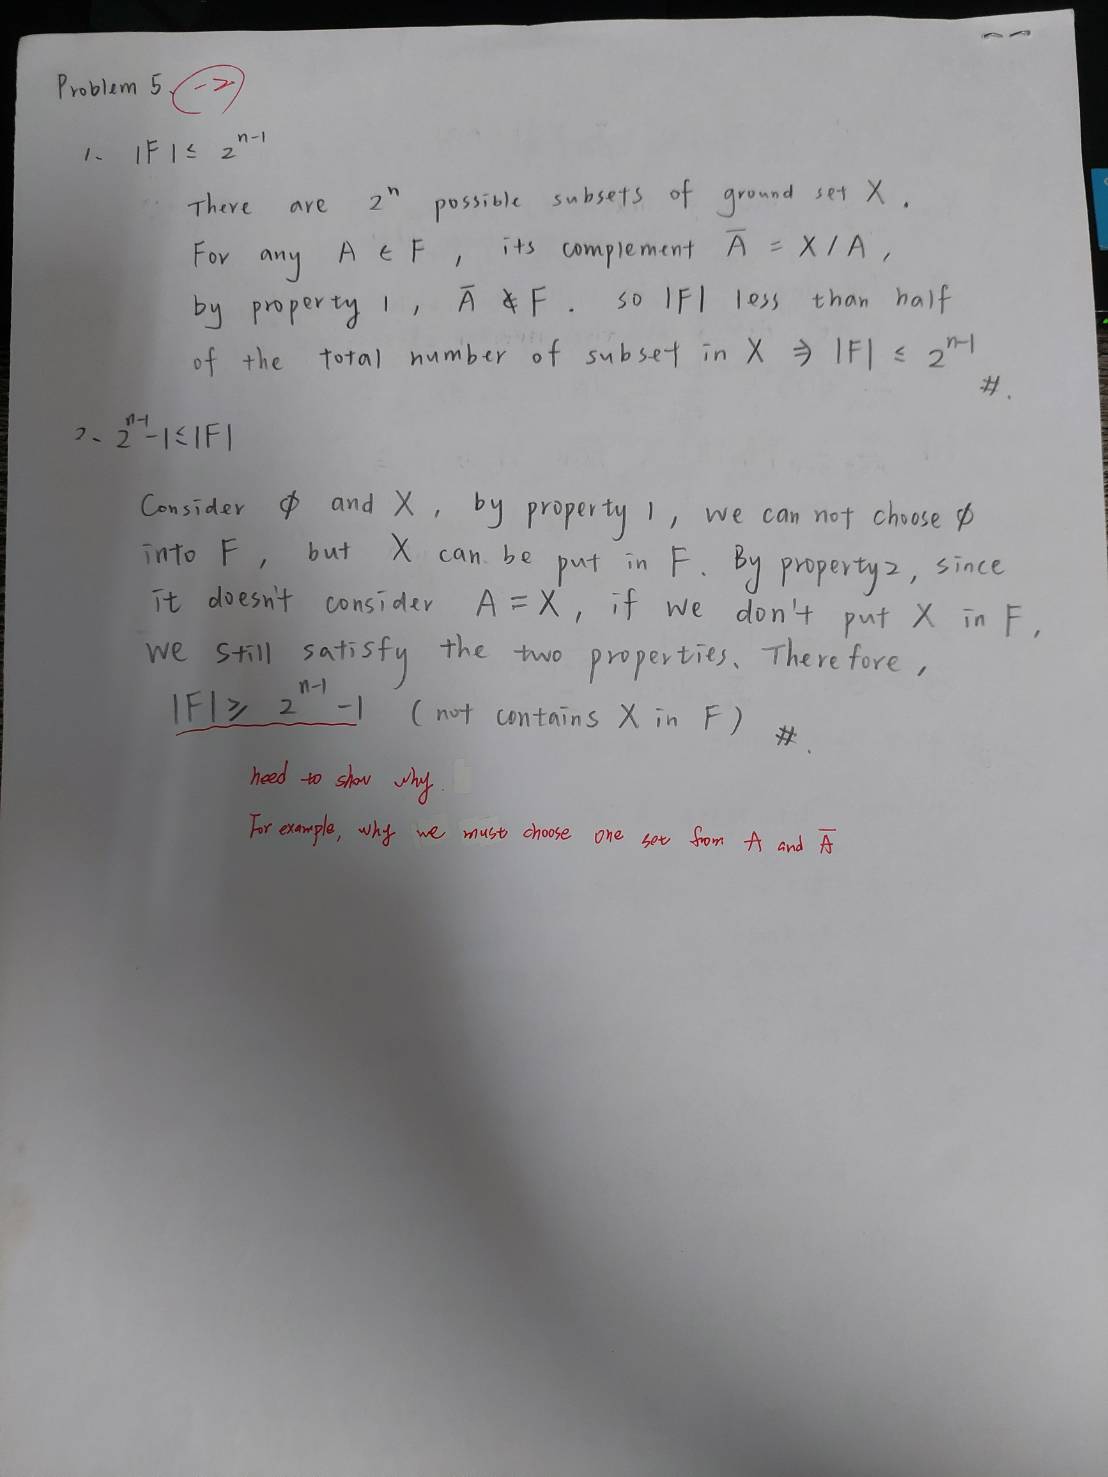 Problem 5. -2
1. |F| ≤ 2^{n-1}
There are 2^n possible subsets of ground set X.
For any A ∈ F, its complement Ā = X/A,
by property 1, Ā ∉ F. so |F| less than half
of the total number of subset in X ⇒ |F| ≤ 2^{n-1}
#.
2. 2^{n-1}-1 ≤ |F|
Consider ∅ and X, by property 1, we can not choose ∅
into F, but X can be put in F. By property 2, since
it doesn't consider A = X, if we don't put X in F,
we still satisfy the two properties. Therefore,
|F| ≥ 2^{n-1} -1 (not contains X in F) #.
need to show why.
For example, why we must choose one set from A and Ā